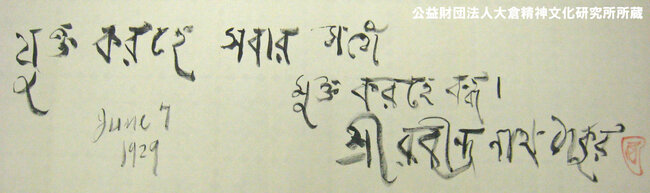 公益財団法人大倉精神文化研究所所蔵
যুক্ত করহে সবার সঙ্গে
মুক্ত করহে বন্ধ।
June 7
1929
শ্রীরবীন্দ্রনাথ ঠাকুর